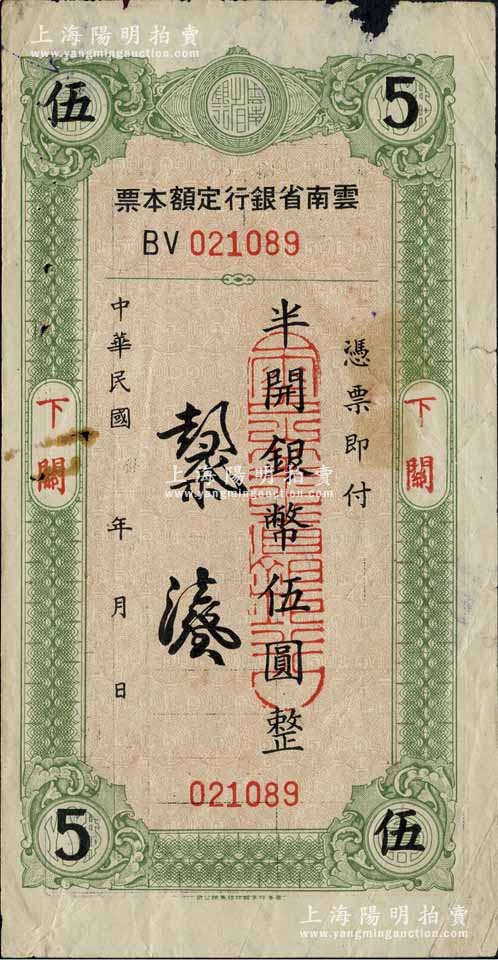 上海陽明拍賣
www.yangmingauction.com
伍
5
票本額定行銀省南雲
BV 021089
憑票即付
半開銀幣伍圓整
中華民國 年 月 日
下關
下關
上海陽明拍賣
www.yangmingauction.com
021089
5
伍
上海陽明拍賣
www.yangmingauction.com